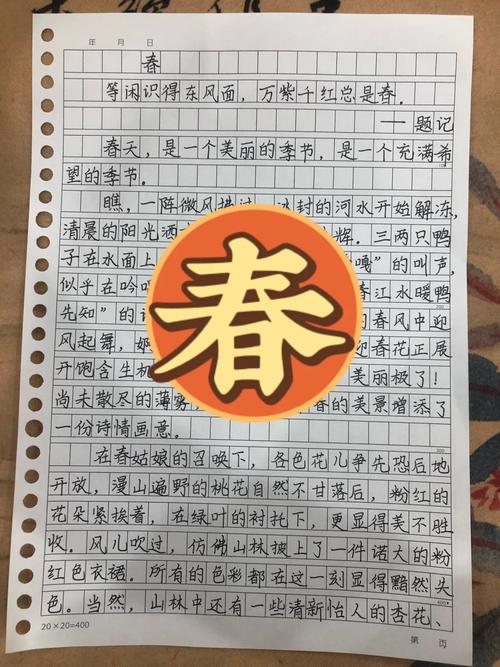 年 月 日
春
等闲识得东风面，万紫千红总是春。
——题记
春天，是一个美丽的季节，是一个充满希
望的季节。
瞧，一阵微风拂过，冰封的河水开始解冻，
清晨的阳光洒 辉。三两只鸭
子在水面上 嘎”的叫声，
似乎在吟 春江水暖鸭
先知”的 春风中迎
风起舞， 迎春花正展
开饱含生机 美丽极了！
尚未散尽的薄雾 春的美景增添了
一份诗情画意。
春
在春姑娘的召唤下，各色花儿争先恐后地
开放，漫山遍野的桃花自然不甘落后，粉红的
花朵紧挨着，在绿叶的衬托下，更显得美不胜
收。风儿吹过，仿佛山林披上了一件诺大的粉
红色衣裙。所有的色彩都在这一刻显得黯然失
色。当然，山林中还有一些清新怡人的杏花、
20×20=400
第 页